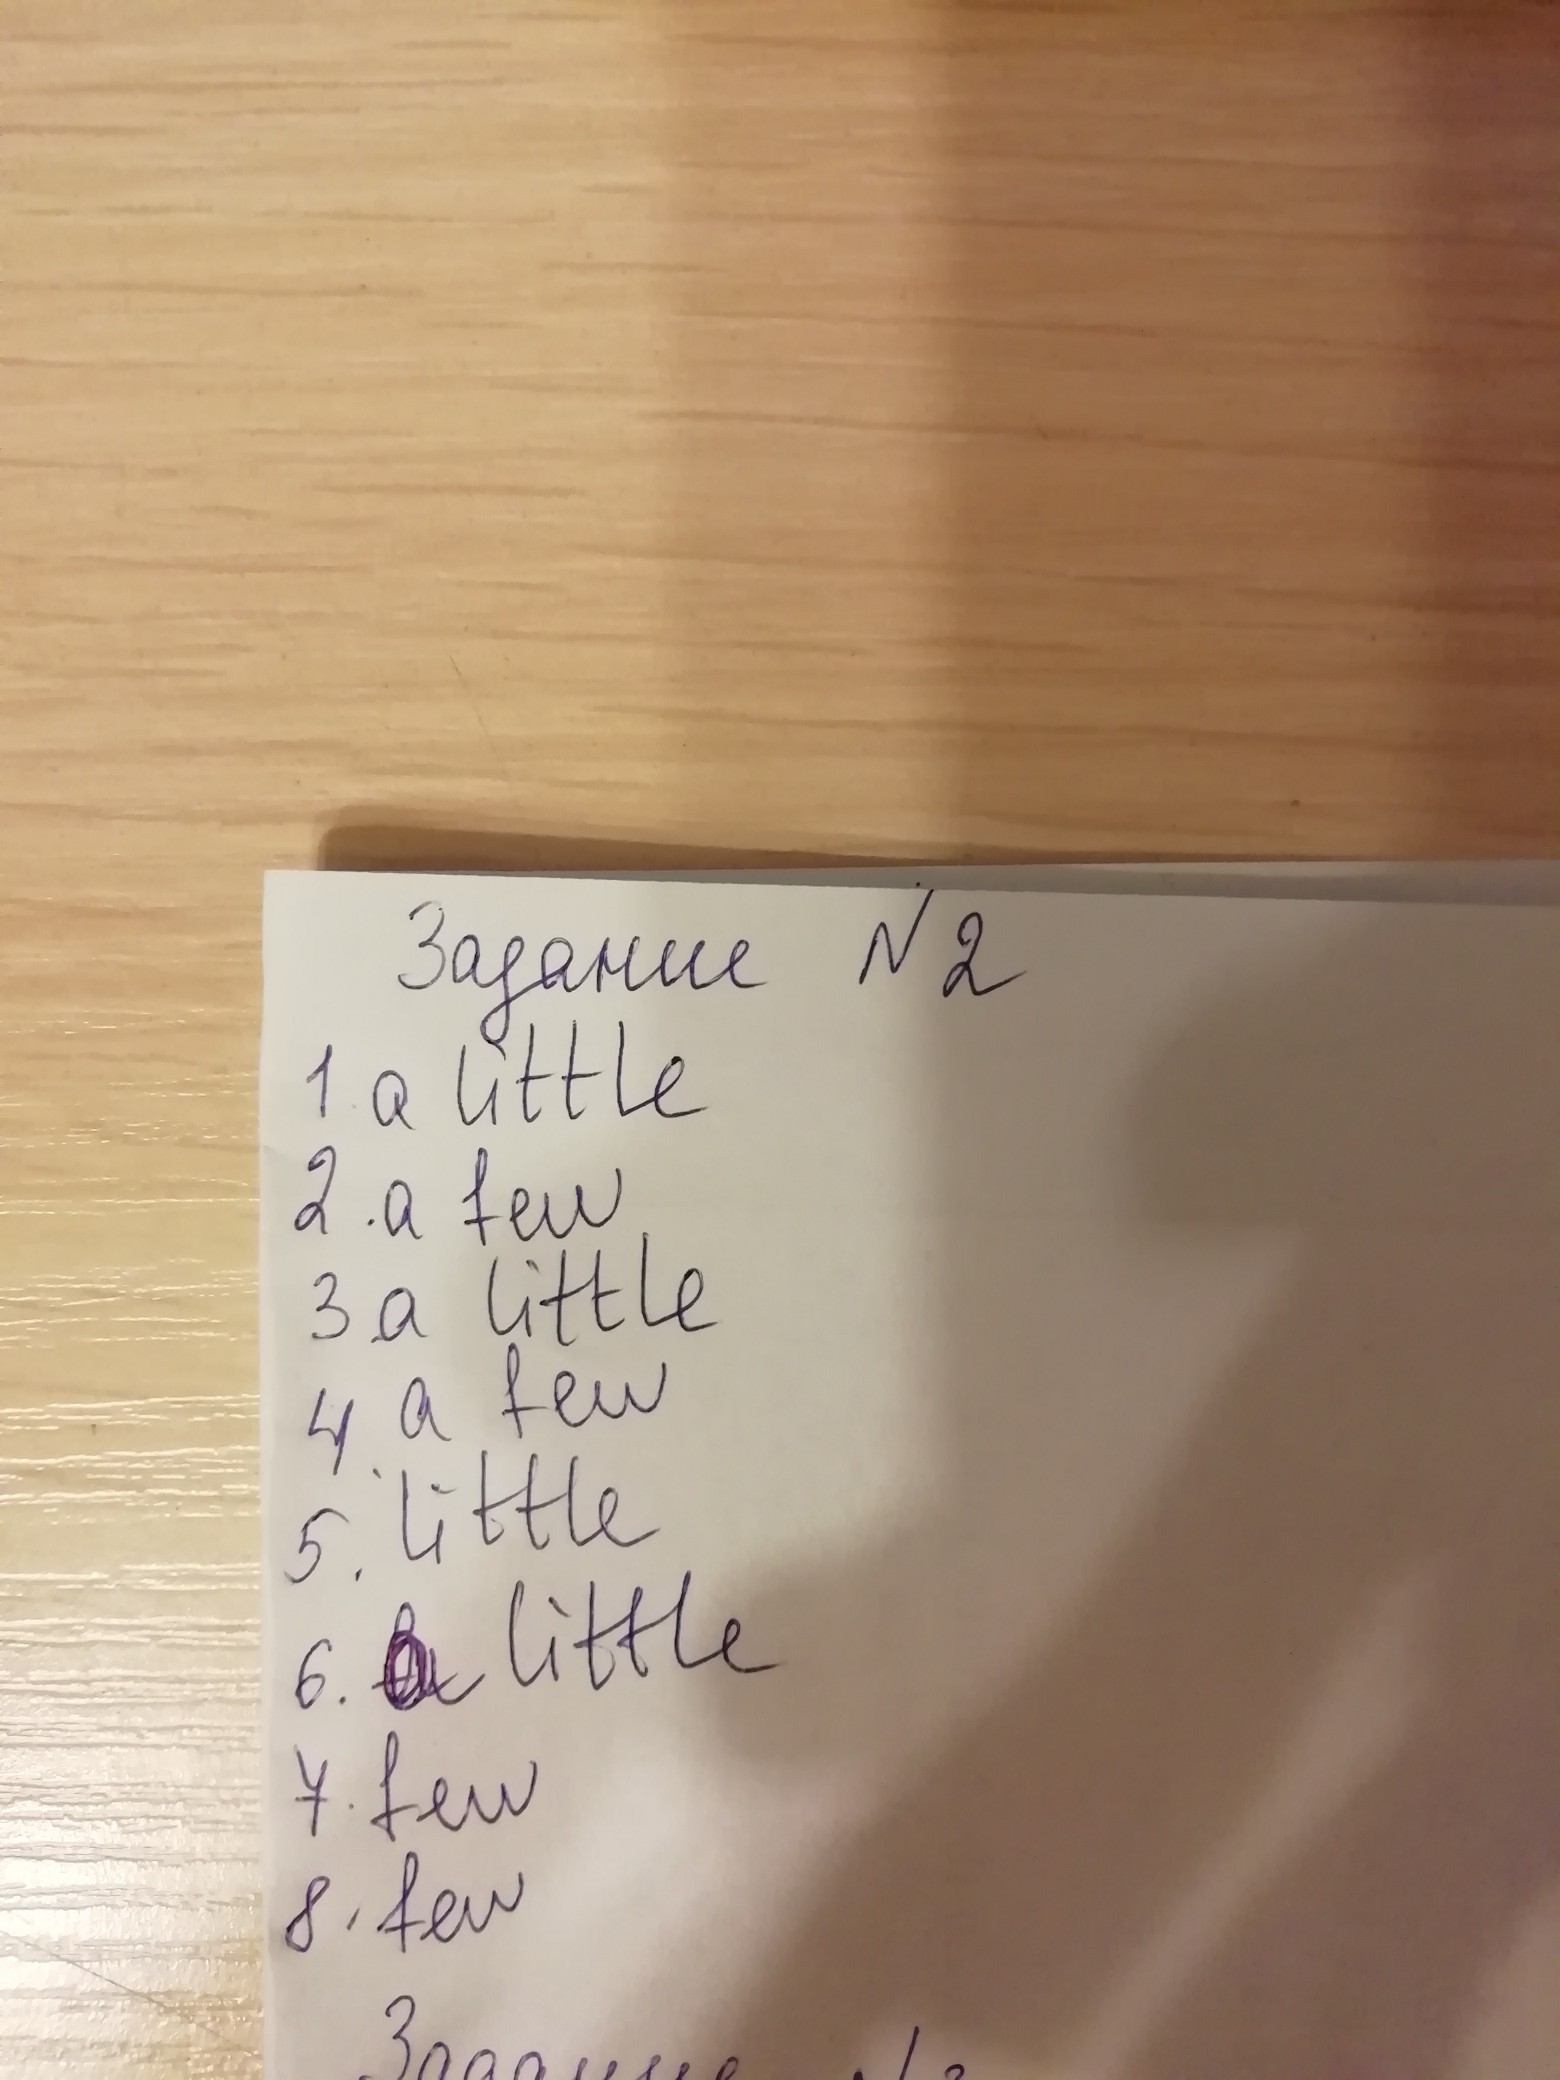 Задание N2
1. a little
2. a few
3. a little
4. a few
5. little
6. a little
7. few
8. few
Задание N3